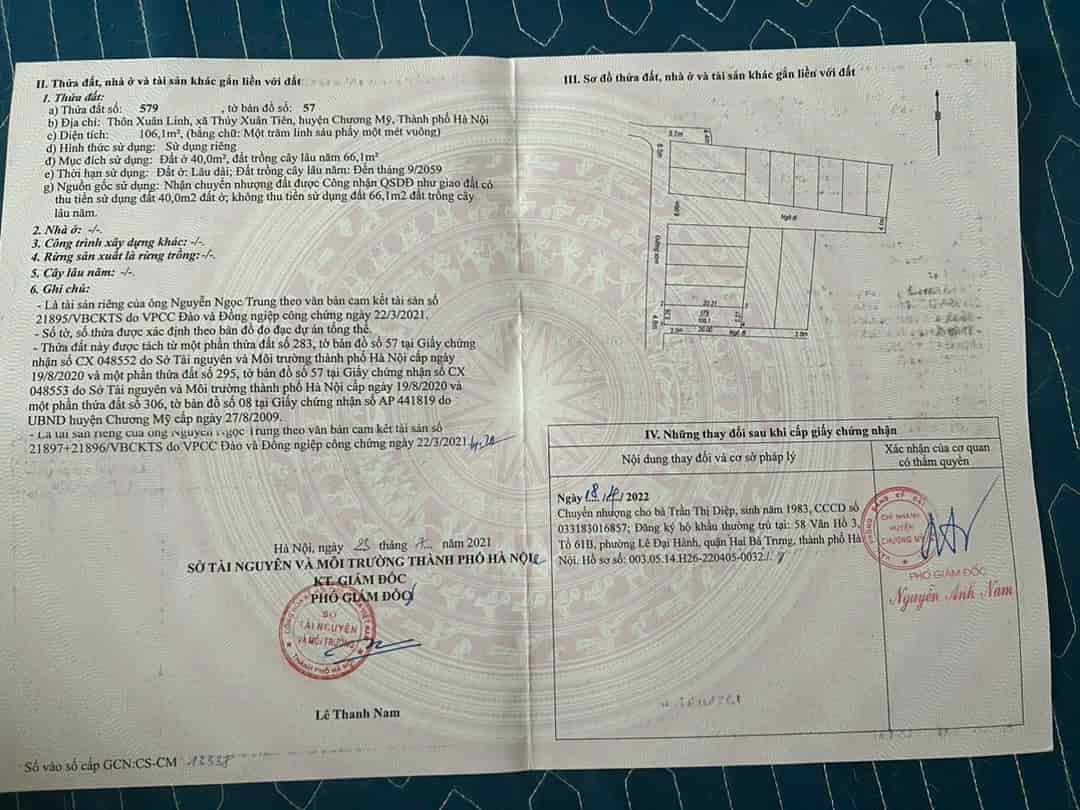 II. Thửa đất, nhà ở và tài sản khác gắn liền với đất
1. Thửa đất:
a) Thửa đất số: 579 , tờ bản đồ số: 57
b) Địa chỉ: Thôn Xuân Linh, xã Thủy Xuân Tiên, huyện Chương Mỹ, Thành phố Hà Nội
c) Diện tích: 106,1m², (bằng chữ: Một trăm linh sáu phẩy một mét vuông)
d) Hình thức sử dụng: Sử dụng riêng
đ) Mục đích sử dụng: Đất ở 40,0m², đất trồng cây lâu năm 66,1m²
e) Thời hạn sử dụng: Đất ở: Lâu dài; Đất trồng cây lâu năm: Đến tháng 9/2059
g) Nguồn gốc sử dụng: Nhận chuyển nhượng đất được Công nhận QSDĐ như giao đất có
thu tiền sử dụng đất 40,0m2 đất ở; không thu tiền sử dụng đất 66,1m2 đất trồng cây
lâu năm.
2. Nhà ở: -/-.
3. Công trình xây dựng khác: -/-.
4. Rừng sản xuất là rừng trồng:-/-.
5. Cây lâu năm: -/-.
6. Ghi chú:
- Là tài sản riêng của ông Nguyễn Ngọc Trung theo văn bản cam kết tài sản số
21895/VBCKTS do VPCC Đào và Đồng ngiệp công chứng ngày 22/3/2021.
- Số tờ, số thửa được xác định theo bản đồ đo đạc dự án tổng thể.
- Thửa đất này được tách từ một phần thửa đất số 283, tờ bản đồ số 57 tại Giấy chứng
nhận số CX 048552 do Sở Tài nguyên và Môi trường thành phố Hà Nội cấp ngày
19/8/2020 và một phần thửa đất số 295, tờ bản đồ số 57 tại Giấy chứng nhận số CX
048553 do Sở Tài nguyên và Môi trường thành phố Hà Nội cấp ngày 19/8/2020 và
một phần thửa đất số 306, tờ bản đồ số 08 tại Giấy chứng nhận số AP 441819 do
UBND huyện Chương Mỹ cấp ngày 27/8/2009.
- Là tài sản riêng của ông Nguyễn Ngọc Trung theo văn bản cam kết tài sản số
21897+21896/VBCKTS do VPCC Đào và Đồng ngiệp công chứng ngày 22/3/2021.
Hà Nội, ngày 23 tháng 7 năm 2021
SỞ TÀI NGUYÊN VÀ MÔI TRƯỜNG THÀNH PHỐ HÀ NỘI
KT. GIÁM ĐỐC
PHÓ GIÁM ĐỐC
SỞ
TÀI NGUYÊN
VÀ MÔI TRƯỜNG
THÀNH PHỐ HÀ NỘI
Lê Thanh Nam
Số vào sổ cấp GCN:CS-CM 13338
III. Sơ đồ thửa đất, nhà ở và tài sản khác gắn liền với đất
Ngõ đi
Đường thôn
20.21
579
106.1
5.26
5.21
2.0m 20.00 Ngõ đi 2.0m
IV. Những thay đổi sau khi cấp giấy chứng nhận
Nội dung thay đổi và cơ sở pháp lý
Xác nhận của cơ quan
có thẩm quyền
Ngày 18/4/2022
Chuyển nhượng cho bà Trần Thị Diệp, sinh năm 1983, CCCD số
033183016857; Đăng ký hộ khẩu thường trú tại: 58 Vân Hồ 3,
Tổ 61B, phường Lê Đại Hành, quận Hai Bà Trưng, thành phố Hà
Nội. Hồ sơ số: 003.05.14.H26-220405-0032./.
CHI NHÁNH
HUYỆN
CHƯƠNG MỸ
PHÓ GIÁM ĐỐC
Nguyễn Anh Nam